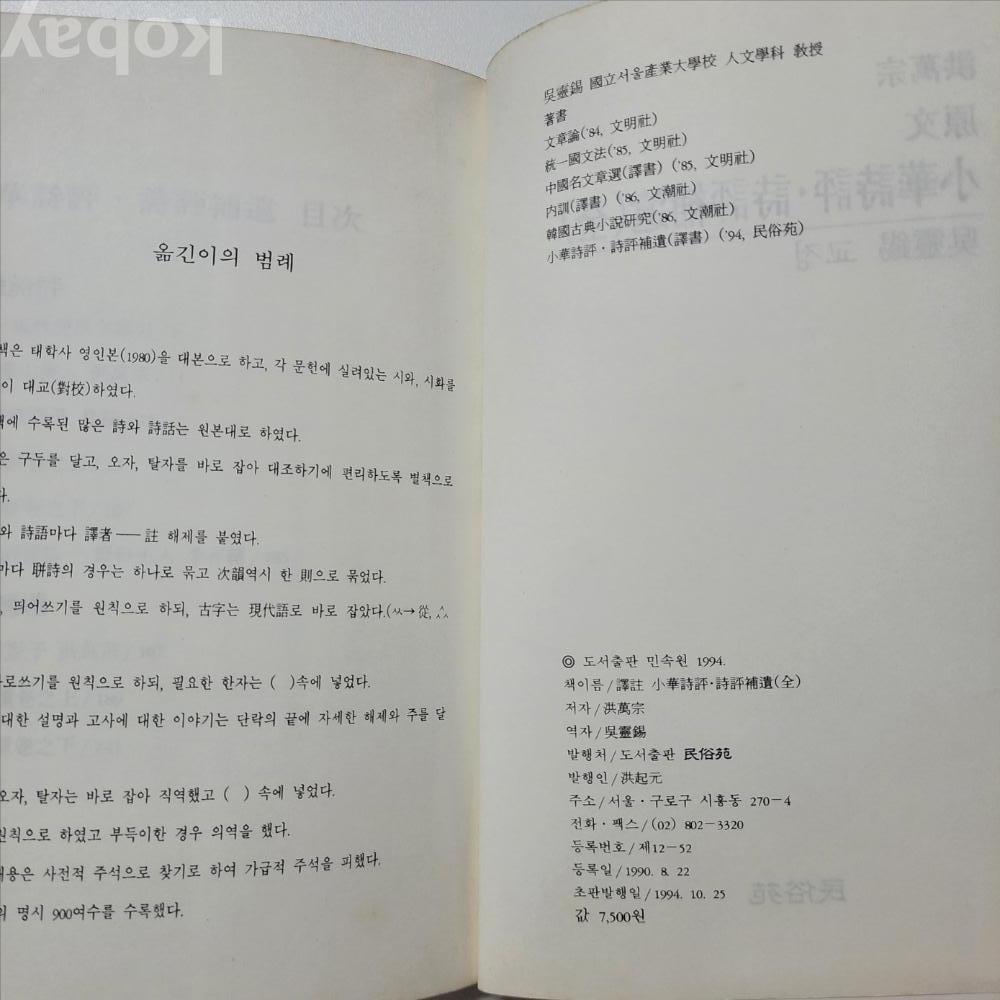 kobay
옮긴이의 범례
책은 태학사 영인본(1980)을 대본으로 하고, 각 문헌에 실려있는 시와, 시화를
이 대교(對校)하였다.
책에 수록된 많은 詩와 詩話는 원본대로 하였다.
은 구두를 달고, 오자, 탈자를 바로 잡아 대조하기에 편리하도록 별책으로
다.
와 詩語마다 譯者 ── 註 해제를 붙였다.
마다 聯詩의 경우는 하나로 묶고 次韻역시 한 則으로 묶었다.
, 띄어쓰기를 원칙으로 하되, 古字는 現代語로 바로 잡았다.(→從,
로쓰기를 원칙으로 하되, 필요한 한자는 ( )속에 넣었다.
대한 설명과 고사에 대한 이야기는 단락의 끝에 자세한 해제와 주를 달
오자, 탈자는 바로 잡아 직역했고 ( ) 속에 넣었다.
원칙으로 하였고 부득이한 경우 의역을 했다.
내용은 사전적 주석으로 찾기로 하여 가급적 주석을 피했다.
의 명시 900여수를 수록했다.
吳靈錫 國立서울產業大學校 人文學科 敎授
著書
文章論('84, 文明社)
統一國文法('85, 文明社)
中國名文章選(譯書) ('85, 文明社)
内訓(譯書) ('86, 文潮社)
韓國古典小說硏究('86, 文潮社)
小華詩評・詩評補遺(譯書) ('94, 民俗苑)
◎ 도서출판 민속원 1994.
책이름/譯註 小華詩評・詩評補遺(全)
저자/洪萬宗
역자/吳靈錫
발행처/도서출판 民俗苑
발행인/洪起元
주소/서울・구로구 시흥동 270-4
전화・팩스/(02) 802-3320
등록번호/제12-52
등록일/1990. 8. 22
초판발행일/1994. 10. 25
값 7,500원